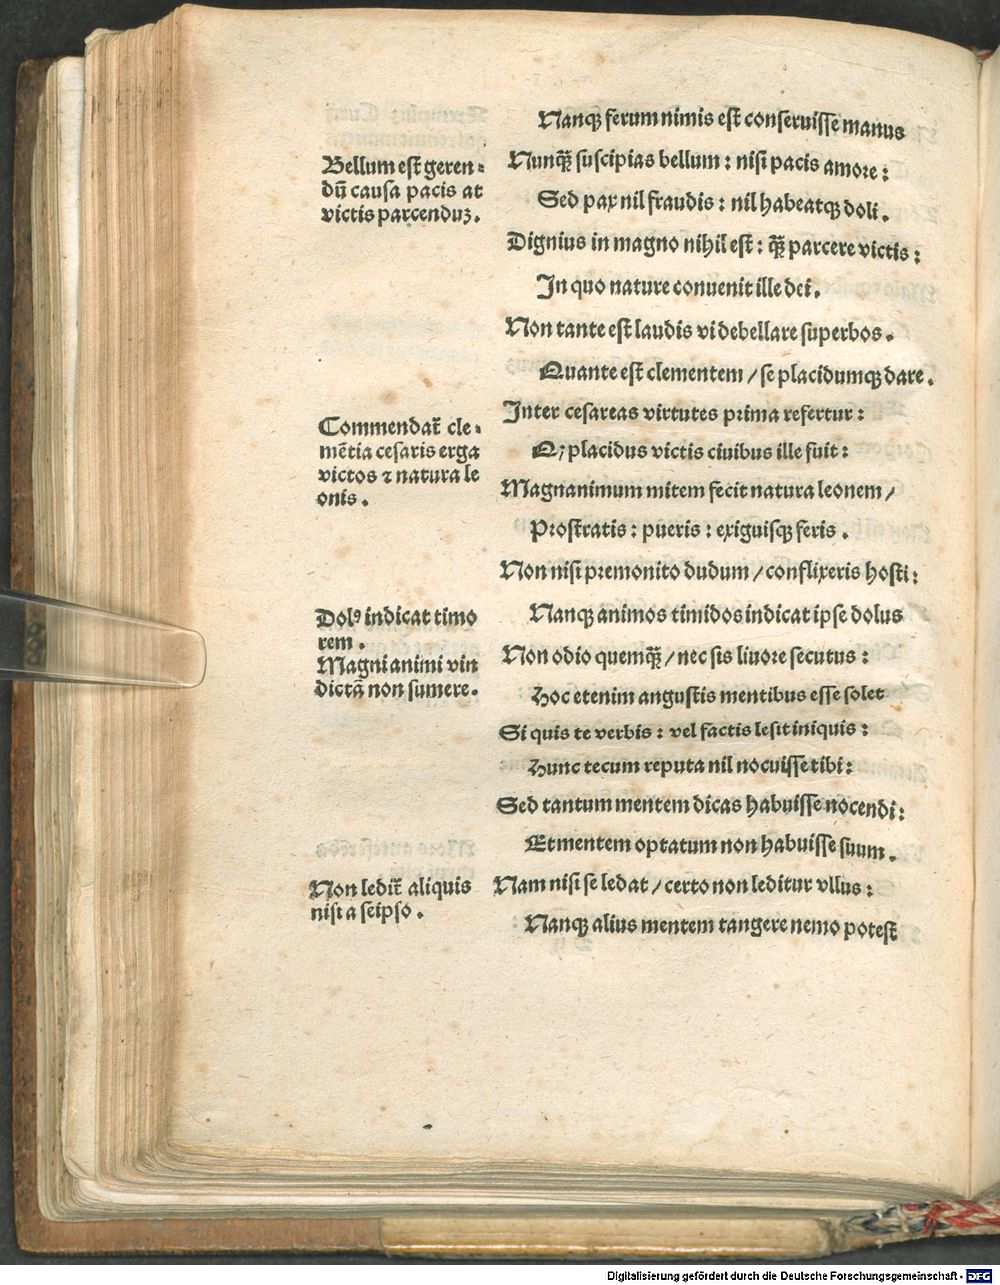 Nanqꝫ ferum nimis est conseruisse manus
Bellum est geren-
dū causa pacis at
victis parcenduꝫ.
Nunqȝ̄ suscipias bellum : nisi pacis amore :
Sed pax nil fraudis : nil habeatqꝫ doli.
Dignius in magno nihil est : qȝ̄ parcere victis :
In quo nature conuenit ille dei.
Non tante est laudis vi debellare superbos.
Quante est clementem / se placidumqꝫ dare.
Inter cesareas virtutes prima refertur :
Commendat̄ cle-
mētia cesaris erga
victos ⁊ natura le
onis.
Qꝫ placidus victis ciuibus ille fuit :
Magnanimum mitem fecit natura leonem /
Prostratis : pueris : exiguisqꝫ feris.
Non nisi premonito dudum / conflixeris hosti :
Dolꝰ indicat timo
rem.
Nanqꝫ animos timidos indicat ipse dolus
Magni animi vin
dictā non sumere.
Non odio quemqȝ̄ / nec sis liuore secutus :
Hoc etenim angustis mentibus esse solet
Si quis te verbis : vel factis lesit iniquis :
Hunc tecum reputa nil nocuisse tibi :
Sed tantum mentem dicas habuisse nocendi :
Et mentem optatum non habuisse suum.
Non ledit̄ aliquis
nisi a seipso.
Nam nisi se ledat / certo non leditur vllus :
Nanqꝫ alius mentem tangere nemo potest
Digitalisierung gefördert durch die Deutsche Forschungsgemeinschaft - DFG